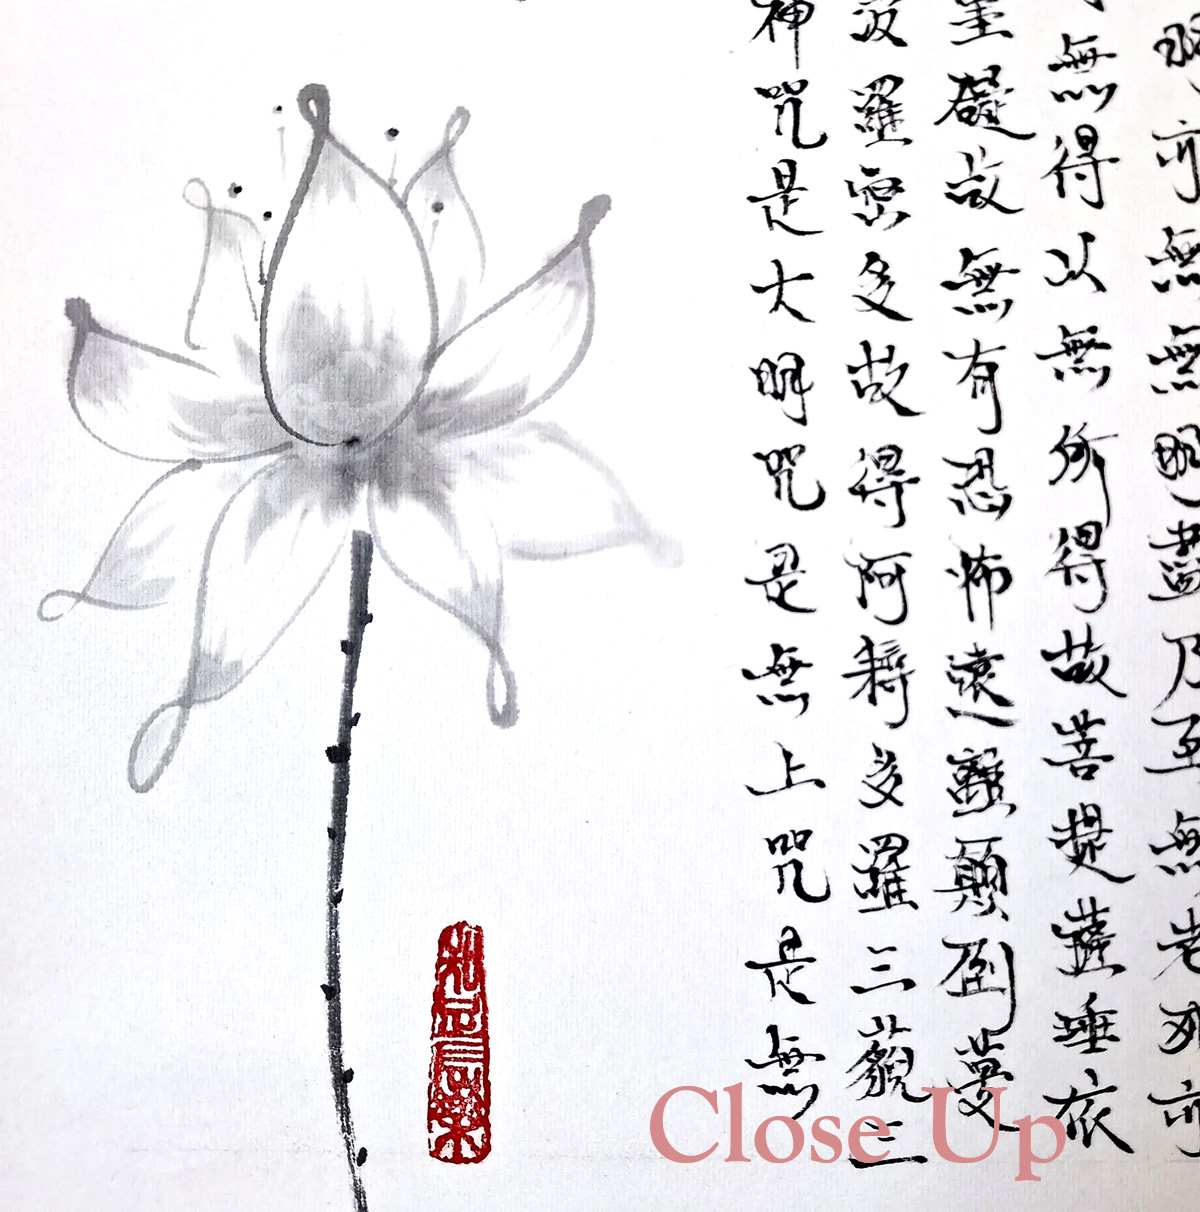 明亦無無明盡乃至無老死亦
無得以無所得故菩提薩埵依
罣礙故無有恐怖遠離顛倒夢
波羅蜜多故得阿耨多羅三藐三
神咒是大明咒是無上咒是無
Close Up